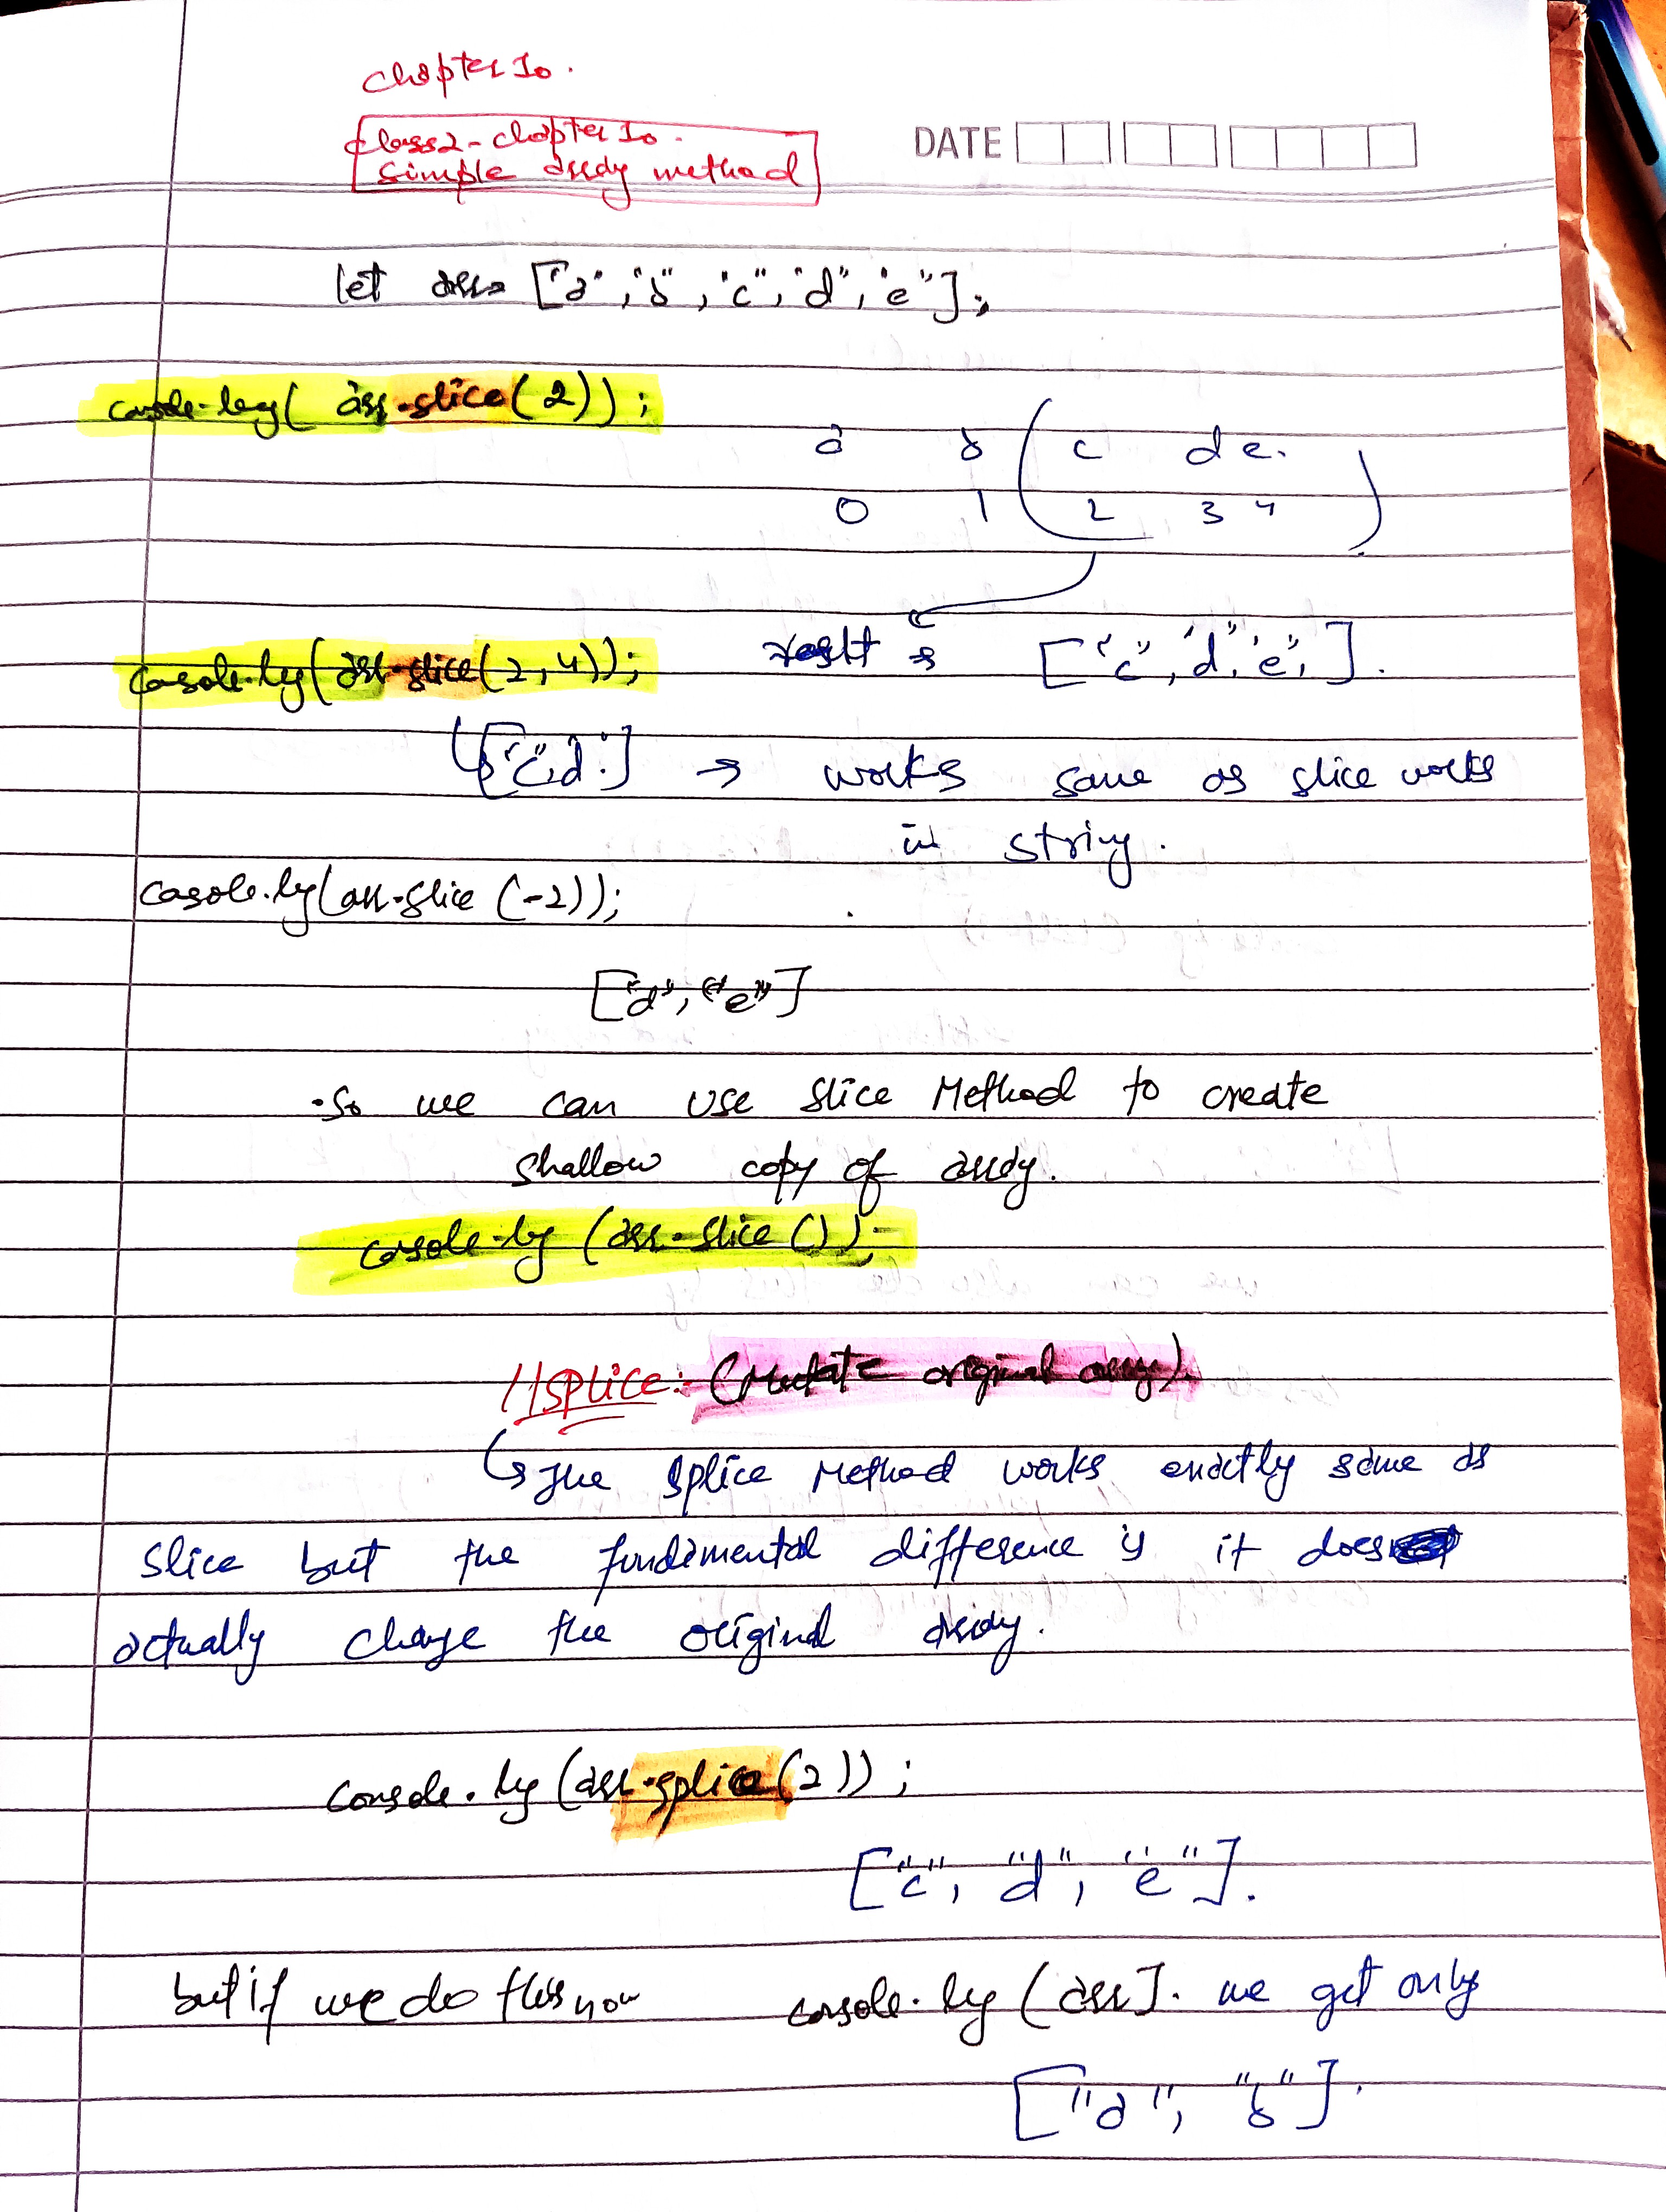 chapter 10.
class2 - chapter 10.
simple array method
DATE
let arr = ["a", "b", "c", "d", "e"];
console.log( arr.slice(2));
a b c d e.
0 1 2 3 4
result → ["c", "d", "e",].
console.log(arr.slice(2,4));
["c", d"] → works same as slice works
in string.
console.log(arr.slice (-2));
["d", "e"]
• So we can use slice Method to create
shallow copy of array.
console.log (arr.slice ());
//SPLICE:- (Mutate original array).
↳ The splice Method works exactly same as
slice but the fundamental difference is it does
actually change the original array.
console.log (arr.splice(2));
["c", "d", "e"].
but if we do this now console.log (arr]. we get only
["a", "b"].